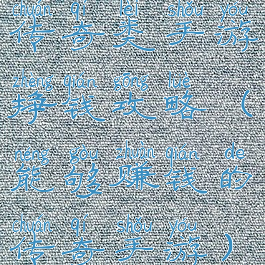 chuán qí lèi shǒu yóu
传奇类手游
zhèng qián gōng lüè
挣钱攻略(
néng gòu zhuàn qián de
能够赚钱的
chuán qí shǒu yóu
传奇手游)